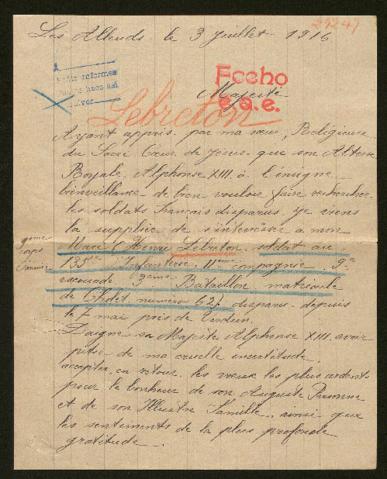 29247
Les Alleuds, le 3 Juillet 1916
Fcého
e.a.e.
Majesté
Lebreton
Ayant appris par ma sœur, Religieuse
du Sacré Cœur de Jésus que son Altesse
Royale, Alphonse XIII à l'insigne
bienveillance de bien vouloir faire rechercher
les soldats français disparus, je viens
la supplier de s'intéresser à mon
Mari Henri Lebreton soldat au
135me Infanterie 11me compagnie, 9e
9ème
corps
d'armée
escouade 3ème Bataillon matricule
de Cholet numéro 627 disparu depuis
le 7 mai près de Verdun.
Daigne sa Majesté Alphonse XIII avoir
pitié de ma cruelle incertitude
accepter en retour les vœux les plus ardents
pour le bonheur de son Auguste Personne
et de son Illustre Famille ainsi que
les sentiments de la plus profonde
gratitude.